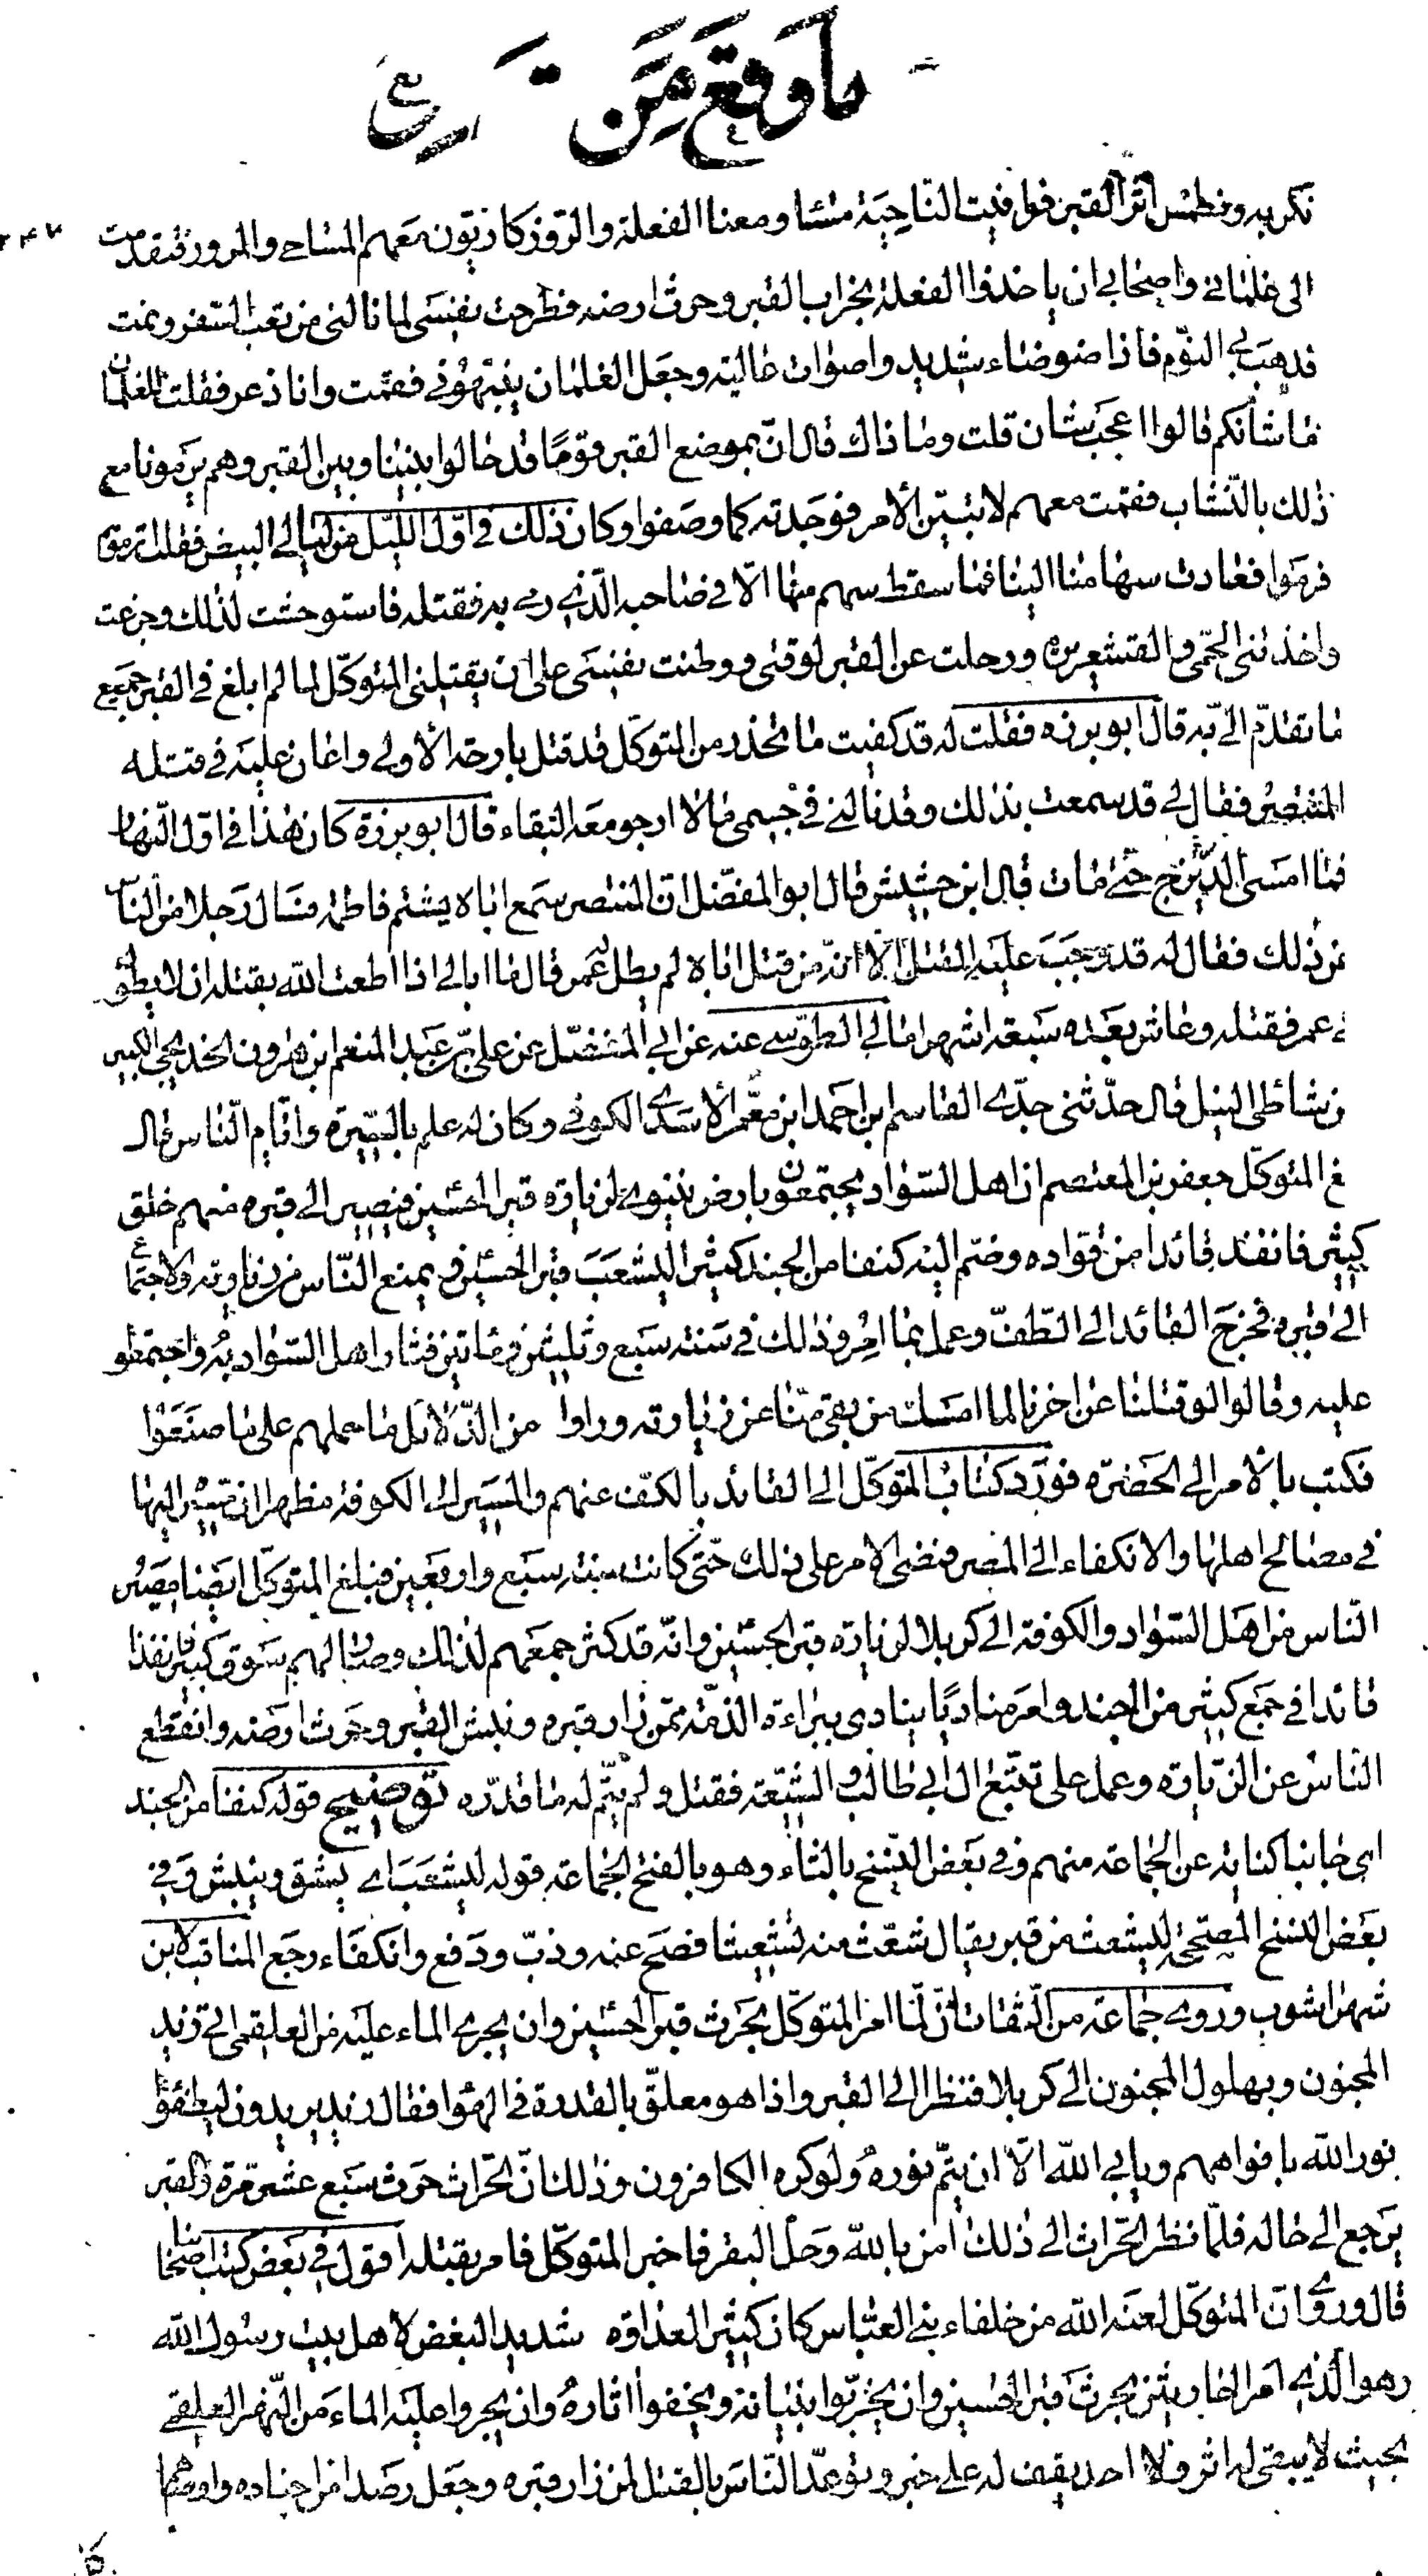 ما وقع من
نكربه ونطمس اثر القبر فوافيت الناحية مساء ومعنا الفعلة والروزكاريون معهم المساحي والمرور فتقدمت
الى غلماني واصحابي ان ياخذوا الفعلة بخراب القبر وحرث ارضه فطرحت نفسي لما نالني من تعب السفر ونمت
فذهب بي النوم فاذا ضوضاء شديد واصوات عالية وجعل الغلمان ينبهوني فقمت وانا ذعر فقلت للغلمان
ما شأنكم قالوا اعجب شان قلت وما ذاك قال ان بموضع القبر قومًا قد حالوا بيننا وبين القبر وهم يرموننا مع
ذلك بالنشاب فقمت معهم لاتبين الأمر فوجدته كما وصفوا وكان ذلك في اول الليل من ليالي البيض فقلت ارموهم
فرموا فعادت سهامنا الينا فما سقط سهم منها الّا في صاحبه الّذي رمى به فقتله فاستوحشت لذلك وجزعت
واخذتني الحمّى والقشعريرة ورحلت عن القبر لوقتي ووطنت نفسي على ان يقتلني المتوكّل لما لم ابلغ في القبر جميع
ما تقدّم الىّ به قال ابو برزه فقلت له قد كفيت ما تحذر من المتوكّل قد قتل بارحة الأولى واعان عليه في قتله
المنتصر فقال لي قد سمعت بذلك وقد نالني في جسمي ما لا ارجو معه البقاء قال ابو برزة كان هذا في اوّل النّهار
فما امسى الديزج حتى مات قال ابن حشيش قال ابو المفضّل ان المنتصر سمع اباه يشتم فاطمة فسال رجلا من الناس
عن ذلك فقال له قد وجب عليه القتل الّا انّه من قتل اباه لم يطل له عمر قال ما ابالي اذا اطعت الله بقتله ان لا يطول
لي عمر فقتله وعاش بعده سبعة اشهر امالي الطوسي عنه عن ابي المفضّل عن علي بن عبد المنعم ابن هرون الخديجي الكبير
من شاطئ النيل قال حدّثني جدّي القاسم ابن احمد ابن معمر الأسدي الكوفي وكان له علم بالسّيرة وايّام النّاس قال
بلغ المتوكّل جعفر بن المعتصم ان اهل السّواد يجتمعون بارض نينوى لزيارة قبر الحسين فيصير الى قبره منهم خلق
كثير فانفذ قائدا من قوّاده وضمّ اليه كنفا من الجند كثيرا ليشعب قبر الحسين ويمنع النّاس من زيارته والاجتماع
الى قبره فخرج القائد الى الطّفّ وعمل بما امر وذلك في سنة سبع وثلثين ومائتين فثار اهل السّواد به واجتمعوا
عليه وقالوا لو قتلنا عن اخرنا لما امسك من بقي منّا عن زيارته وراوا من الدّلائل ما حملهم على ما صنعوا
فكتب بالأمر الى الحضرة فورد كتاب المتوكّل الى القائد بالكفّ عنهم والمسير الى الكوفة مظهرا ان مسيره اليها
في مصالح اهلها والانكفاء الى المصر فمضى الامر على ذلك حتى كانت سنة سبع واربعين فبلغ المتوكّل ايضا مصير
النّاس من اهل السّواد والكوفة الى كربلا لزيارة قبر الحسين وانّه قد كثر جمعهم لذلك وصار لهم سوق كبير فانفذ
قائدا في جمع كثير من الجند وامر مناديًا ينادي ببراءة الذمّة ممّن زار قبره ونبش القبر وحرث ارضه وانقطع
النّاس عن الزّيارة وعمل على تتبّع ال ابي طالب والشيعة فقتل ولم يتمّ له ما قدّره توضيح قوله كنفا من الجند
اي جانبا كناية عن الجماعة منهم وفي بعض النّسخ بالثاء وهو بالفتح الجماعة قوله ليشعب اي يشق وينبش وفي
بعض النسخ المصححة ليشعث من قبره يقال شعّث منه تشعيثا فضح عنه وذبّ ودفع وانكفاء رجع المناقب لابن
شهراشوب وروى جماعة من الثقات انّه لمّا امر المتوكّل بحرث قبر الحسين وان يجرى الماء عليه من العلقمي اتى زيد
المجنون وبهلول المجنون الى كربلا فنظرا الى القبر واذا هو معلّق بالقدرة في الهوا فقال زيد يريدون ليطفئوا
نور الله بافواههم ويابى الله الّا ان يتمّ نوره ولو كره الكافرون وذلك انّ الحرّاث حرث سبع عشرة مرّة والقبر
يرجع الى حاله فلمّا نظر الحرّاث الى ذلك امن بالله وحلّ البقر فاخبر المتوكّل فامر بقتله اقول في بعض كتب اصحابنا
قال وروى ان المتوكّل لعنه الله من خلفاء بني العبّاس كان كثير العداوة شديد البغض لاهل بيت رسول الله
وهو الّذي امر الحارثين بحرث قبر الحسين وان يخرّبوا بنيانه ويخفوا اثاره وان يجروا عليه الماء من النّهر العلقمي
بحيث لا يبقى له اثر ولا احد يقف له على خبر وتوعّد النّاس بالقتل لمن زار قبره وجعل رصدا من اجناده واوصاهم